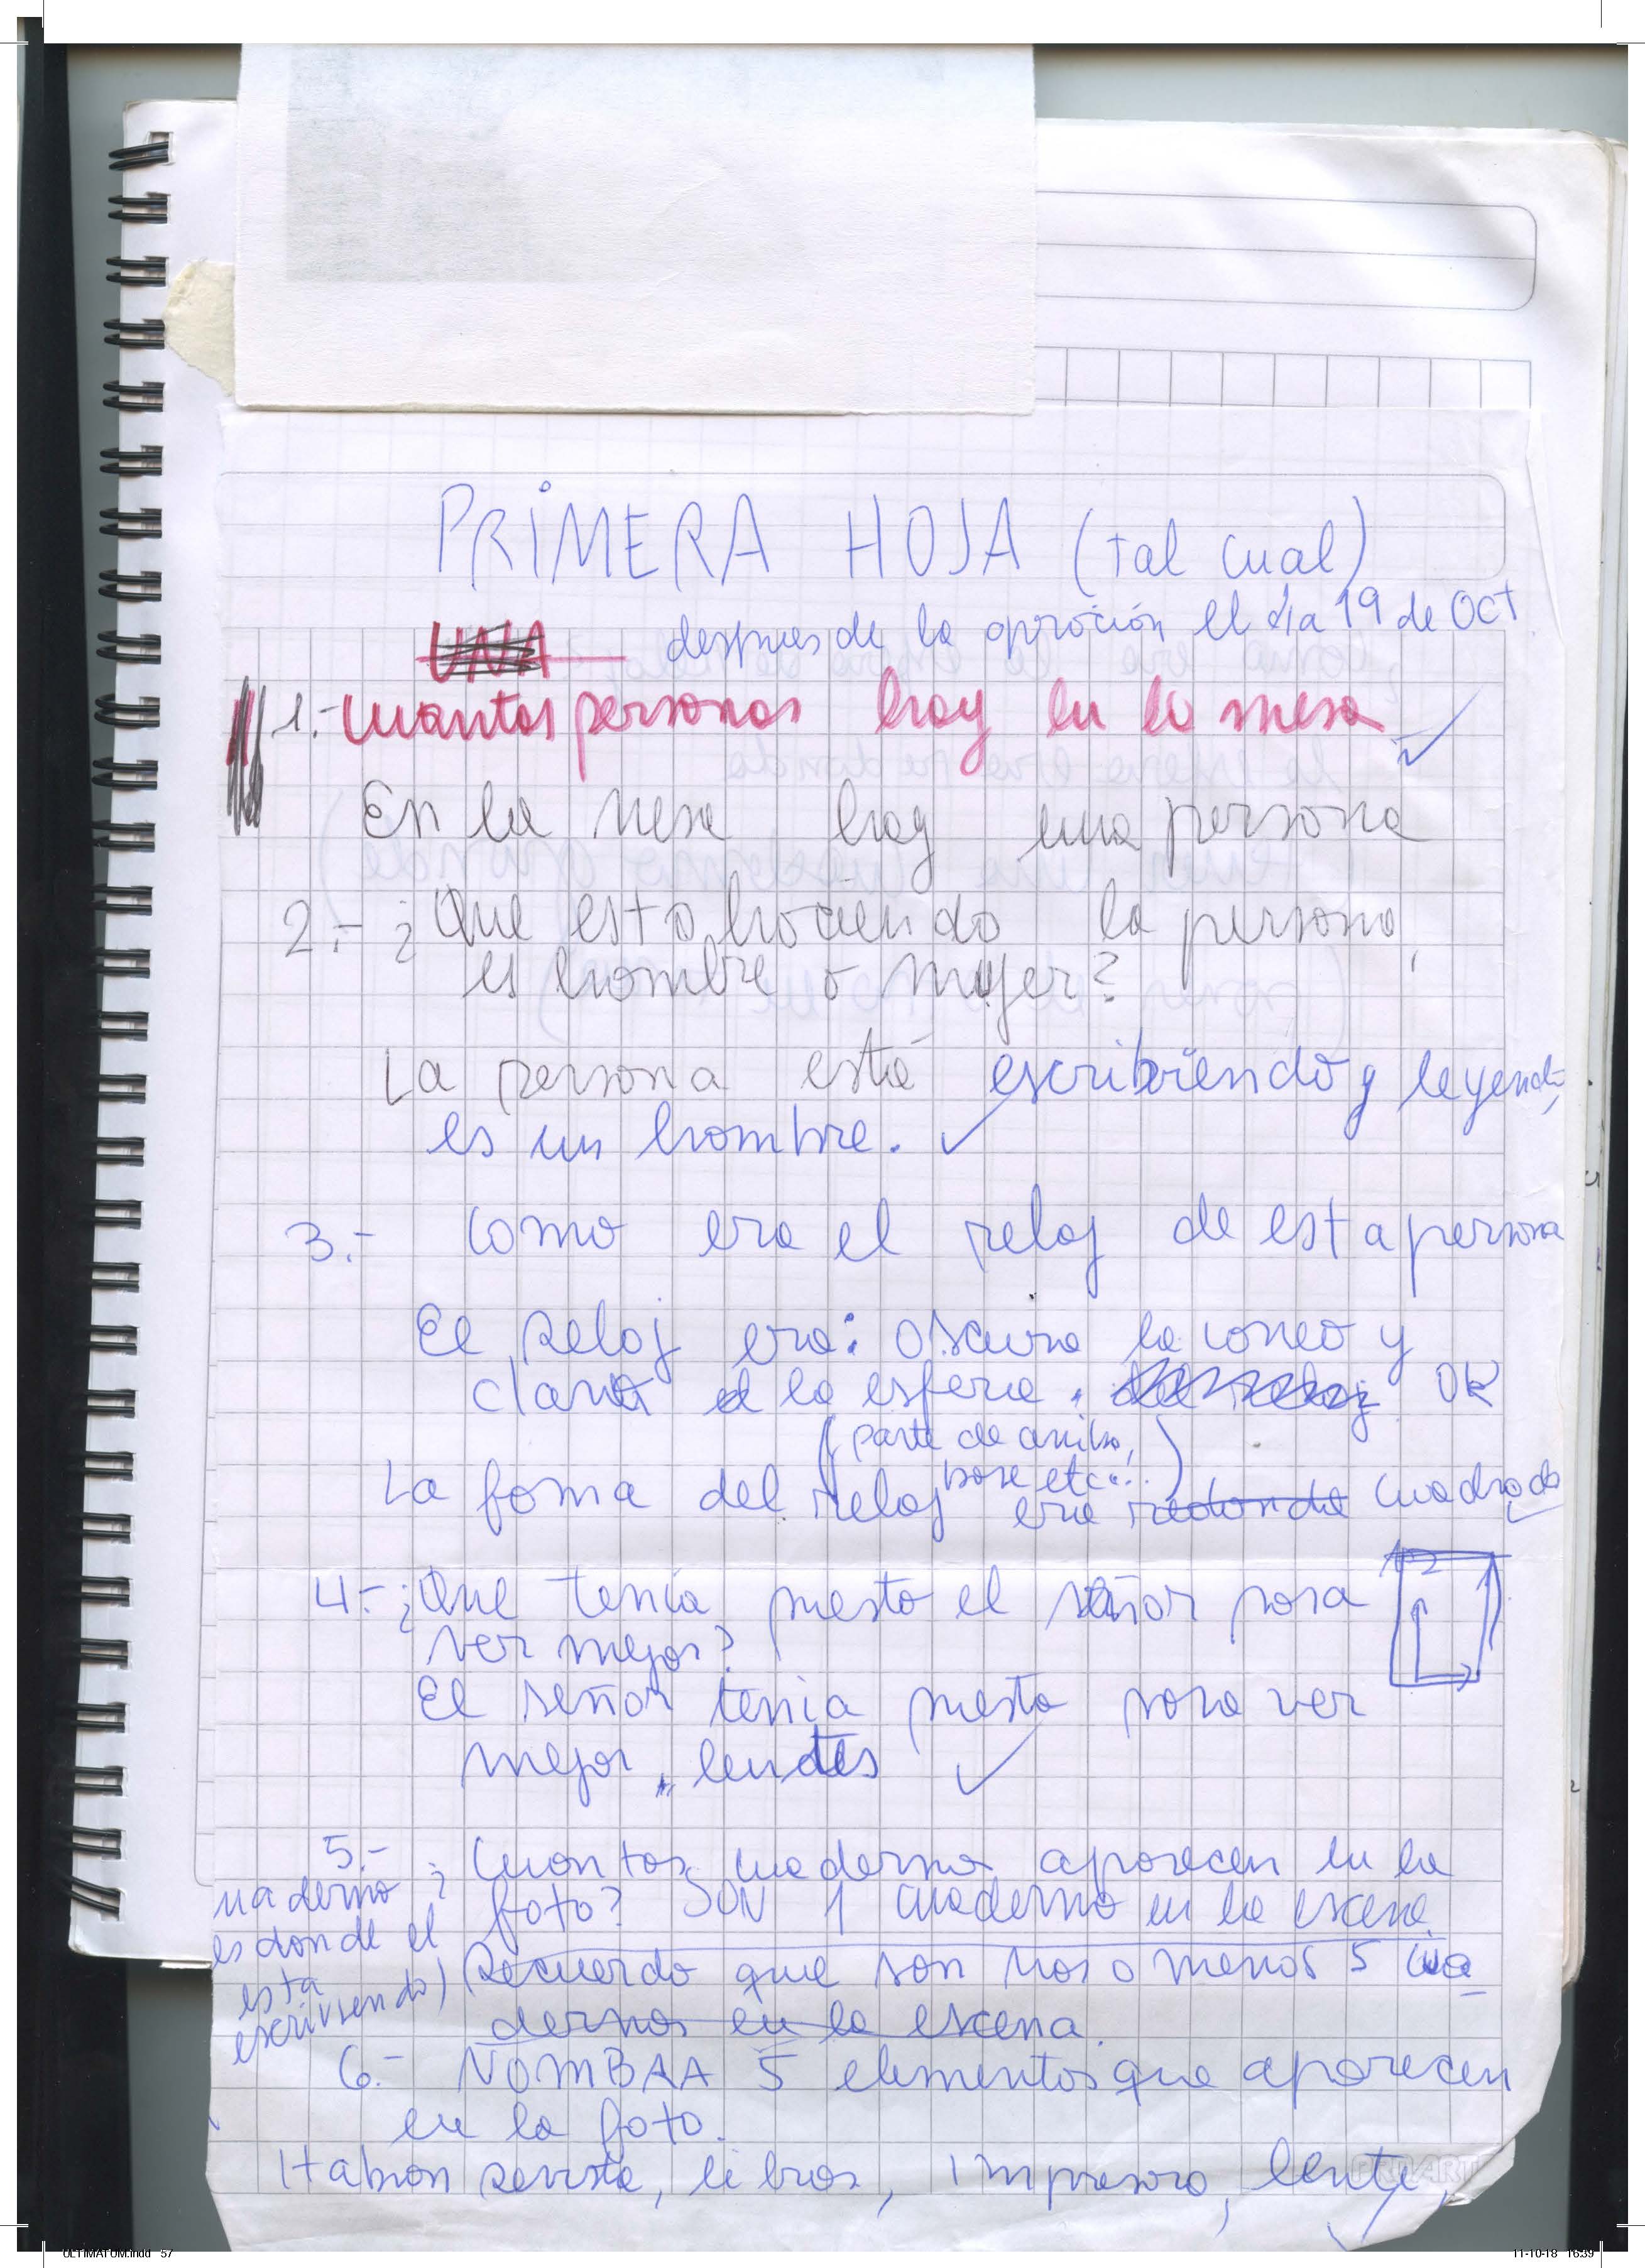 PRIMERA HOJA (tal cual)
UNA despues de la oproción el dia 19 de Oct
1.- Cuantas personas hay en la mesa
En la mesa hay una persona
2.- ¿Que esta haciendo la persona,
es hombre o mujer?
La persona está escribiendo y leyendo,
es un hombre.
3.- como era el reloj de esta persona
El reloj era: oscura la correa y
clara d la esfera. del reloj OK
(parte de arriba,
base etc...)
La forma del reloj era redonda cuadrada
4.- ¿Que tenía puesto el señor para
ver mejor?
El señor tenia puesto para ver
mejor, lentes
5.- ¿Cuantos cuaderno aparecen en la
foto? SON 1 cuaderno en la escena
Recuerdo que son mas o menos 5 cua
dernos en la escena.
cuaderno
es donde el
esta
escriviendo)
6.- NOMBRA 5 elementos que aparecen
en la foto.
Habian revista, libros, impresora, lente,
PROARTE
ULTIMATUM.indd 57
11-10-18 16:39